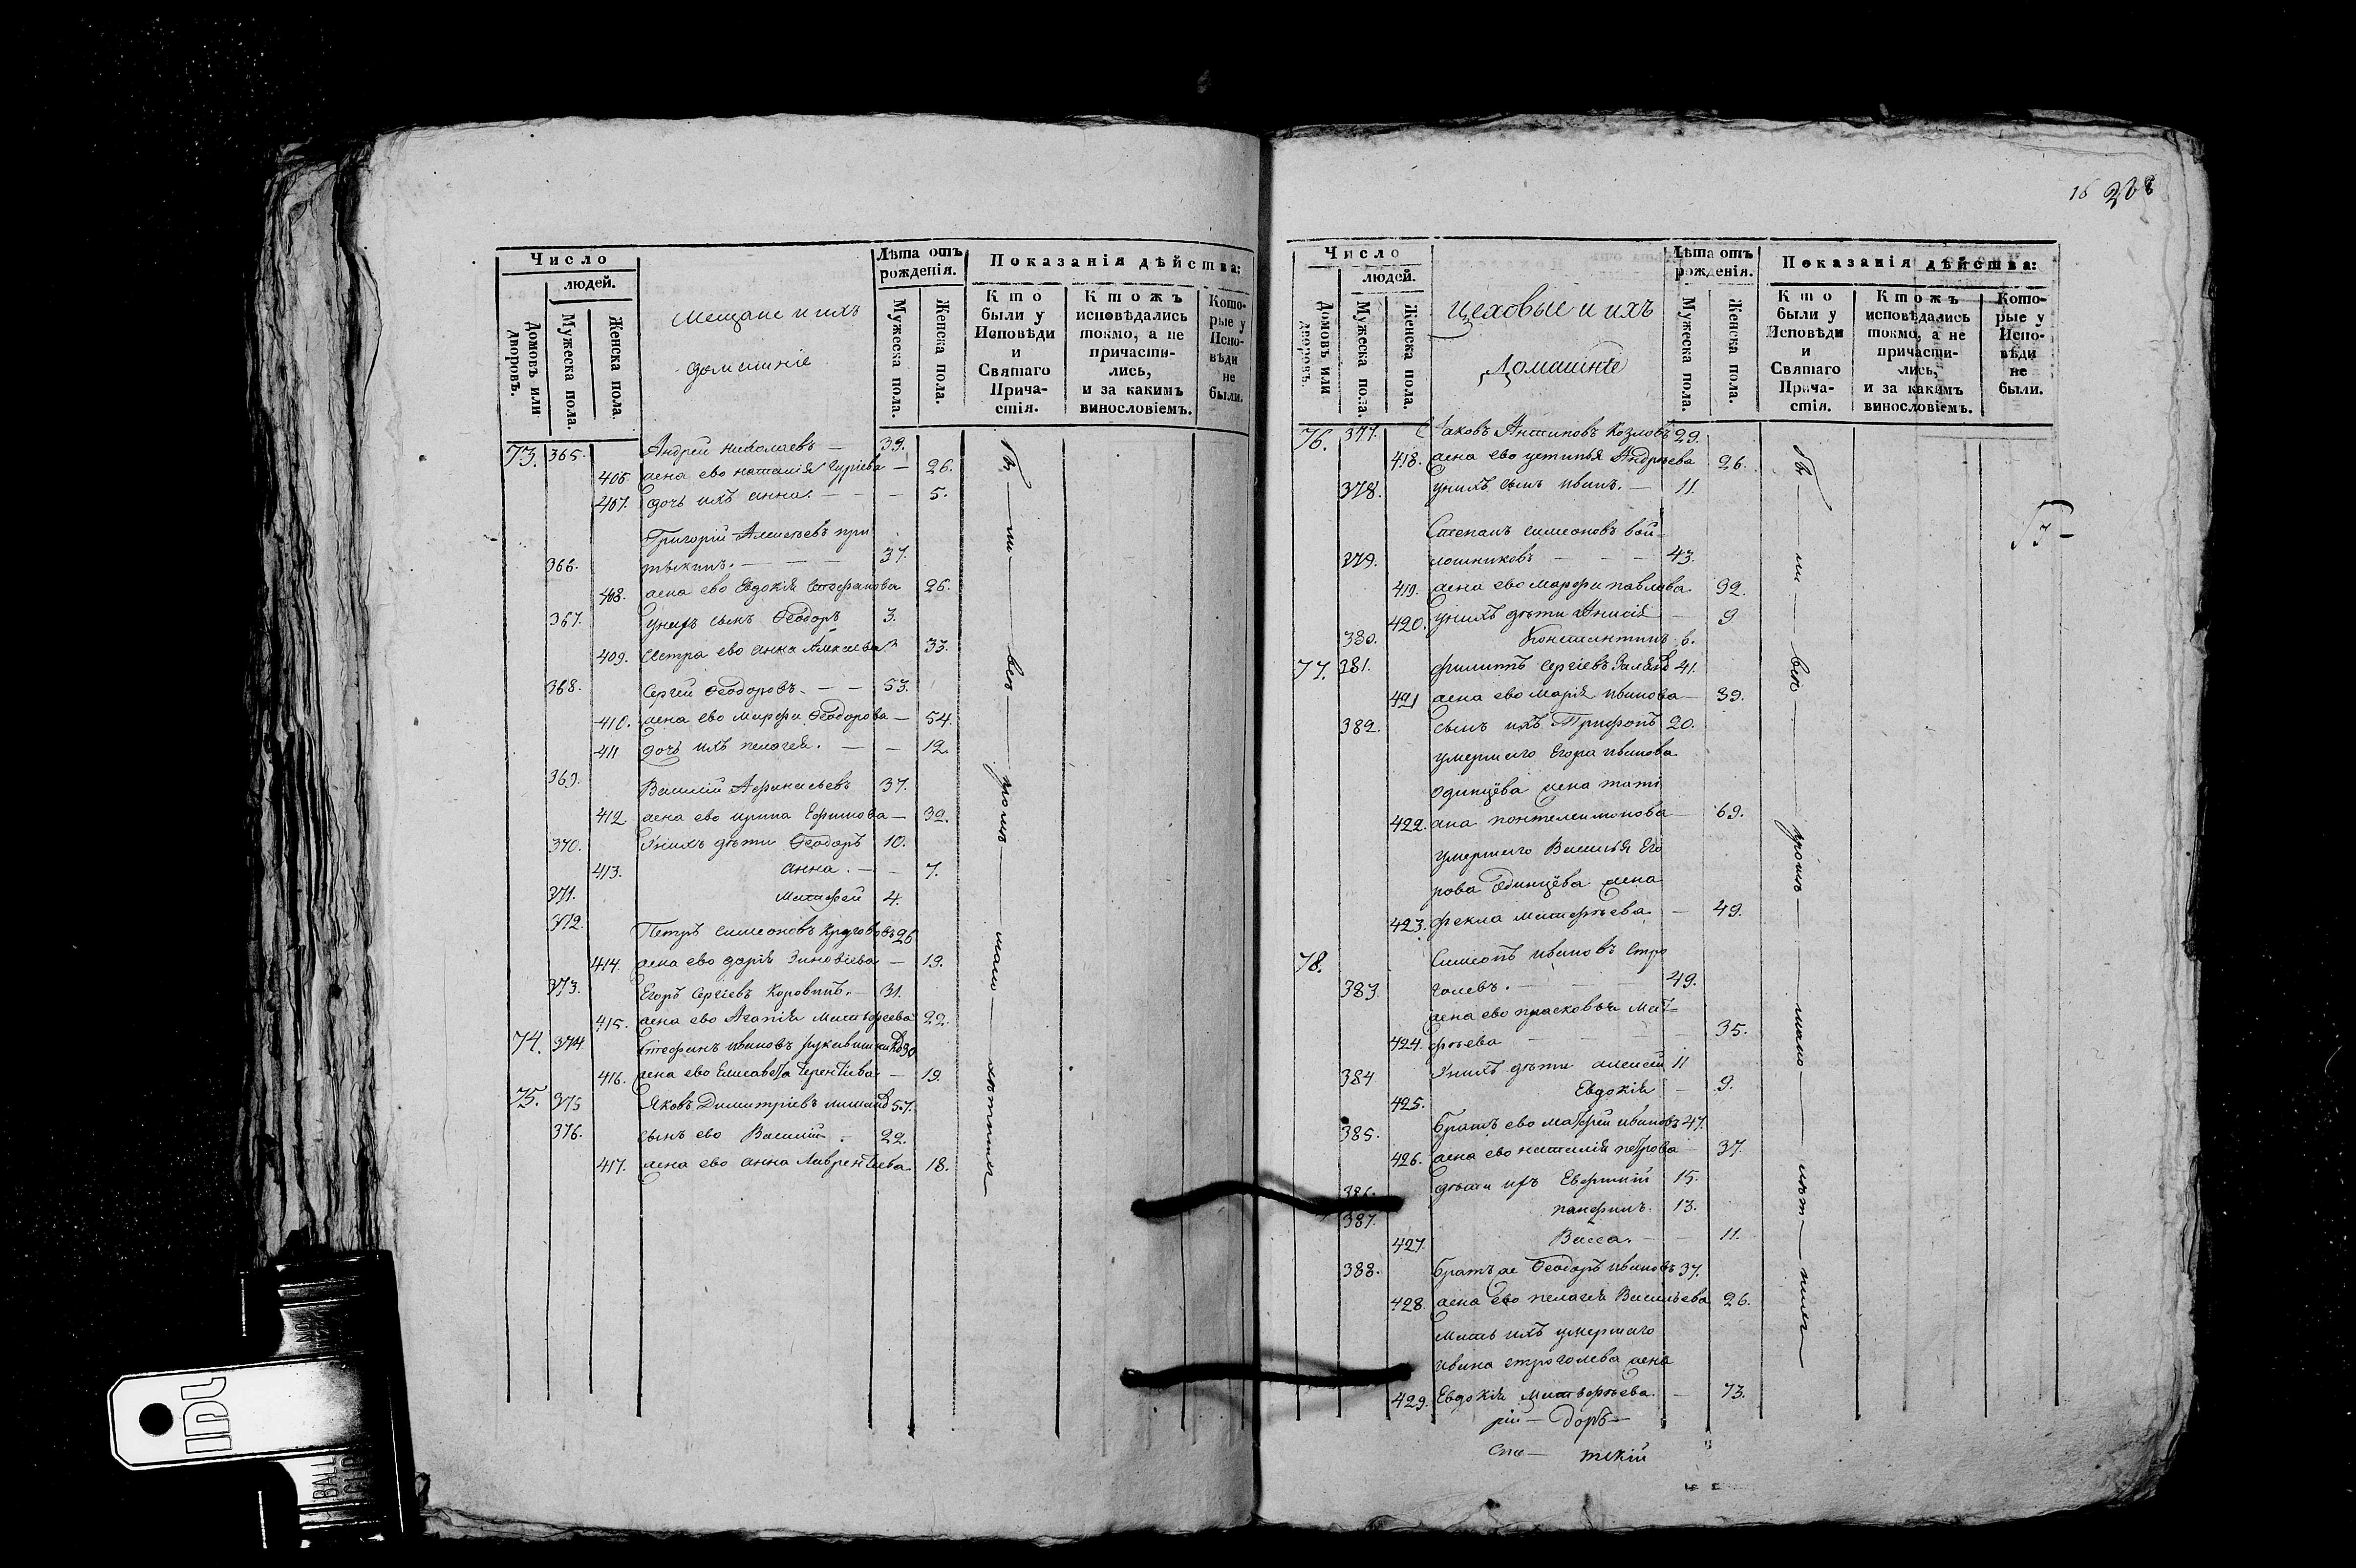 16 238
Число
людей.
Домовъ или дворовъ.
Мужеска пола.
Женска пола.
Мещане и ихъ
домашніе
Лѣта отъ рожденія.
Мужеска пола.
Женска пола.
Показанія дѣйства:
Кто были у Исповѣди и Святаго Причастія.
Ктожъ исповѣдались токмо, а не причастились, и за какимъ винословіемъ.
Которые у Исповѣди не были.
73. 365. Андрей Николаевъ — 39.
406. жена ево наталія Гуріева — 26.
407. дочь ихъ анна. — — 5.
Григорій Алексѣевъ
366. — — 37.
408. жена ево Евдокія Стефанова 26.
367. у нихъ сынъ Ѳеодоръ 3.
409. Сестра ево анна Алексѣева 33.
368. Сергей Ѳеодоровъ. — — 53.
410. жена ево марфа Ѳеодорова — 54.
411 дочь ихъ пелагея. — — 12.
369. Василій Афанасьевъ 37.
412. жена ево ирина Ефимова — 32.
370. У нихъ дѣти Ѳеодоръ 10.
413. анна. — — 7.
371. Матфей 4.
372. Петръ симеоновъ Круговъ 26
414. жена ево дарія Зиновіева — 19.
373. Егоръ Сергіевъ Коровинъ. — 31.
415. жена ево Агапія Матвфеева 22.
74. 374. Стефанъ ивановъ 30
416. жена ево Елисавета Терентіева — 19.
75. 375 Яковъ Димитріевъ 57.
376. сынъ ево Василій — 22.
417. жена ево анна Лаврентіева 18.
Число
людей.
Домовъ или дворовъ.
Мужеска пола.
Женска пола.
Цеховые и ихъ
Домашніе
Лѣта отъ рожденія.
Мужеска пола.
Женска пола.
Показанія дѣйства:
Кто были у Исповѣди и Святаго Причастія.
Ктожъ исповѣдались токмо, а не причастились, и за какимъ винословіемъ.
Которые у Исповѣди не были.
76. 377. Яковъ Антиповъ Козловъ 29.
418. жена ево устинья Андреева 26.
378. у нихъ сынъ иванъ. — 11.
Степанъ симеоновъ вой-
379. лошниковъ — — — 43.
419. жена ево марфа павлова 32.
420. у нихъ дѣти Анисія — 9
380. Константинъ 6.
77. 381. филиппъ Сергіевъ 41.
421 жена ево марія иванова — 39.
382. сынъ ихъ Трифонъ 20.
умершаго Егора иванова
одинцева жена тати
422. ана понтелеимонова — 69.
умершаго Василья Его
рова Одинцева жена
423. фекла матфѣева — 49.
78. Симеонъ ивановъ Стро
383. голевъ. — — — 49.
жена ево прасковья мат-
424. фѣева — — — 35.
384 У нихъ дѣти алексей 11
425. Евдокія — 9.
385. братъ ево матфей ивановъ 47.
426. жена ево наталія петрова 37.
386. дѣти ихъ Евфимій 15.
387. панфилъ. 13.
427. Васса. — — 11.
388. братъ же Ѳеодоръ ивановъ 37.
428. жена ево пелагея Васильева 26.
мать ихъ умершаго
ивана строголева жена
429. Евдокія матвфѣева. — 73.
рій — Доръ —
IDL